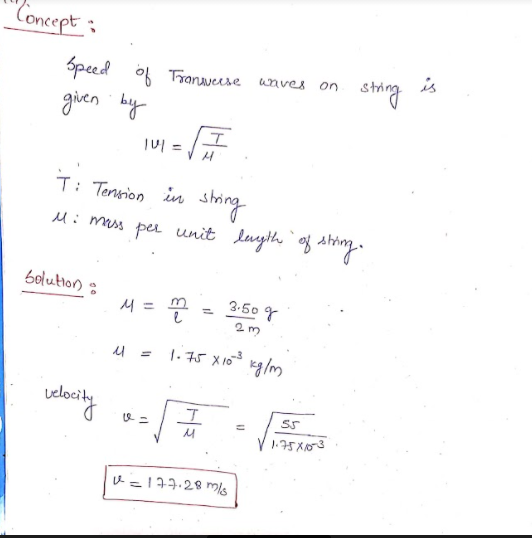 Concept :
Speed of Transverse waves on string is
given by
|v| = √(T/μ)
T : Tension in string
μ : mass per unit length of string.
Solution :
μ = m/l = 3.50 g / 2 m
μ = 1.75 × 10⁻³ kg/m
velocity v = √(T/μ) = √(55 / 1.75×10⁻³)
v = 177.28 m/s